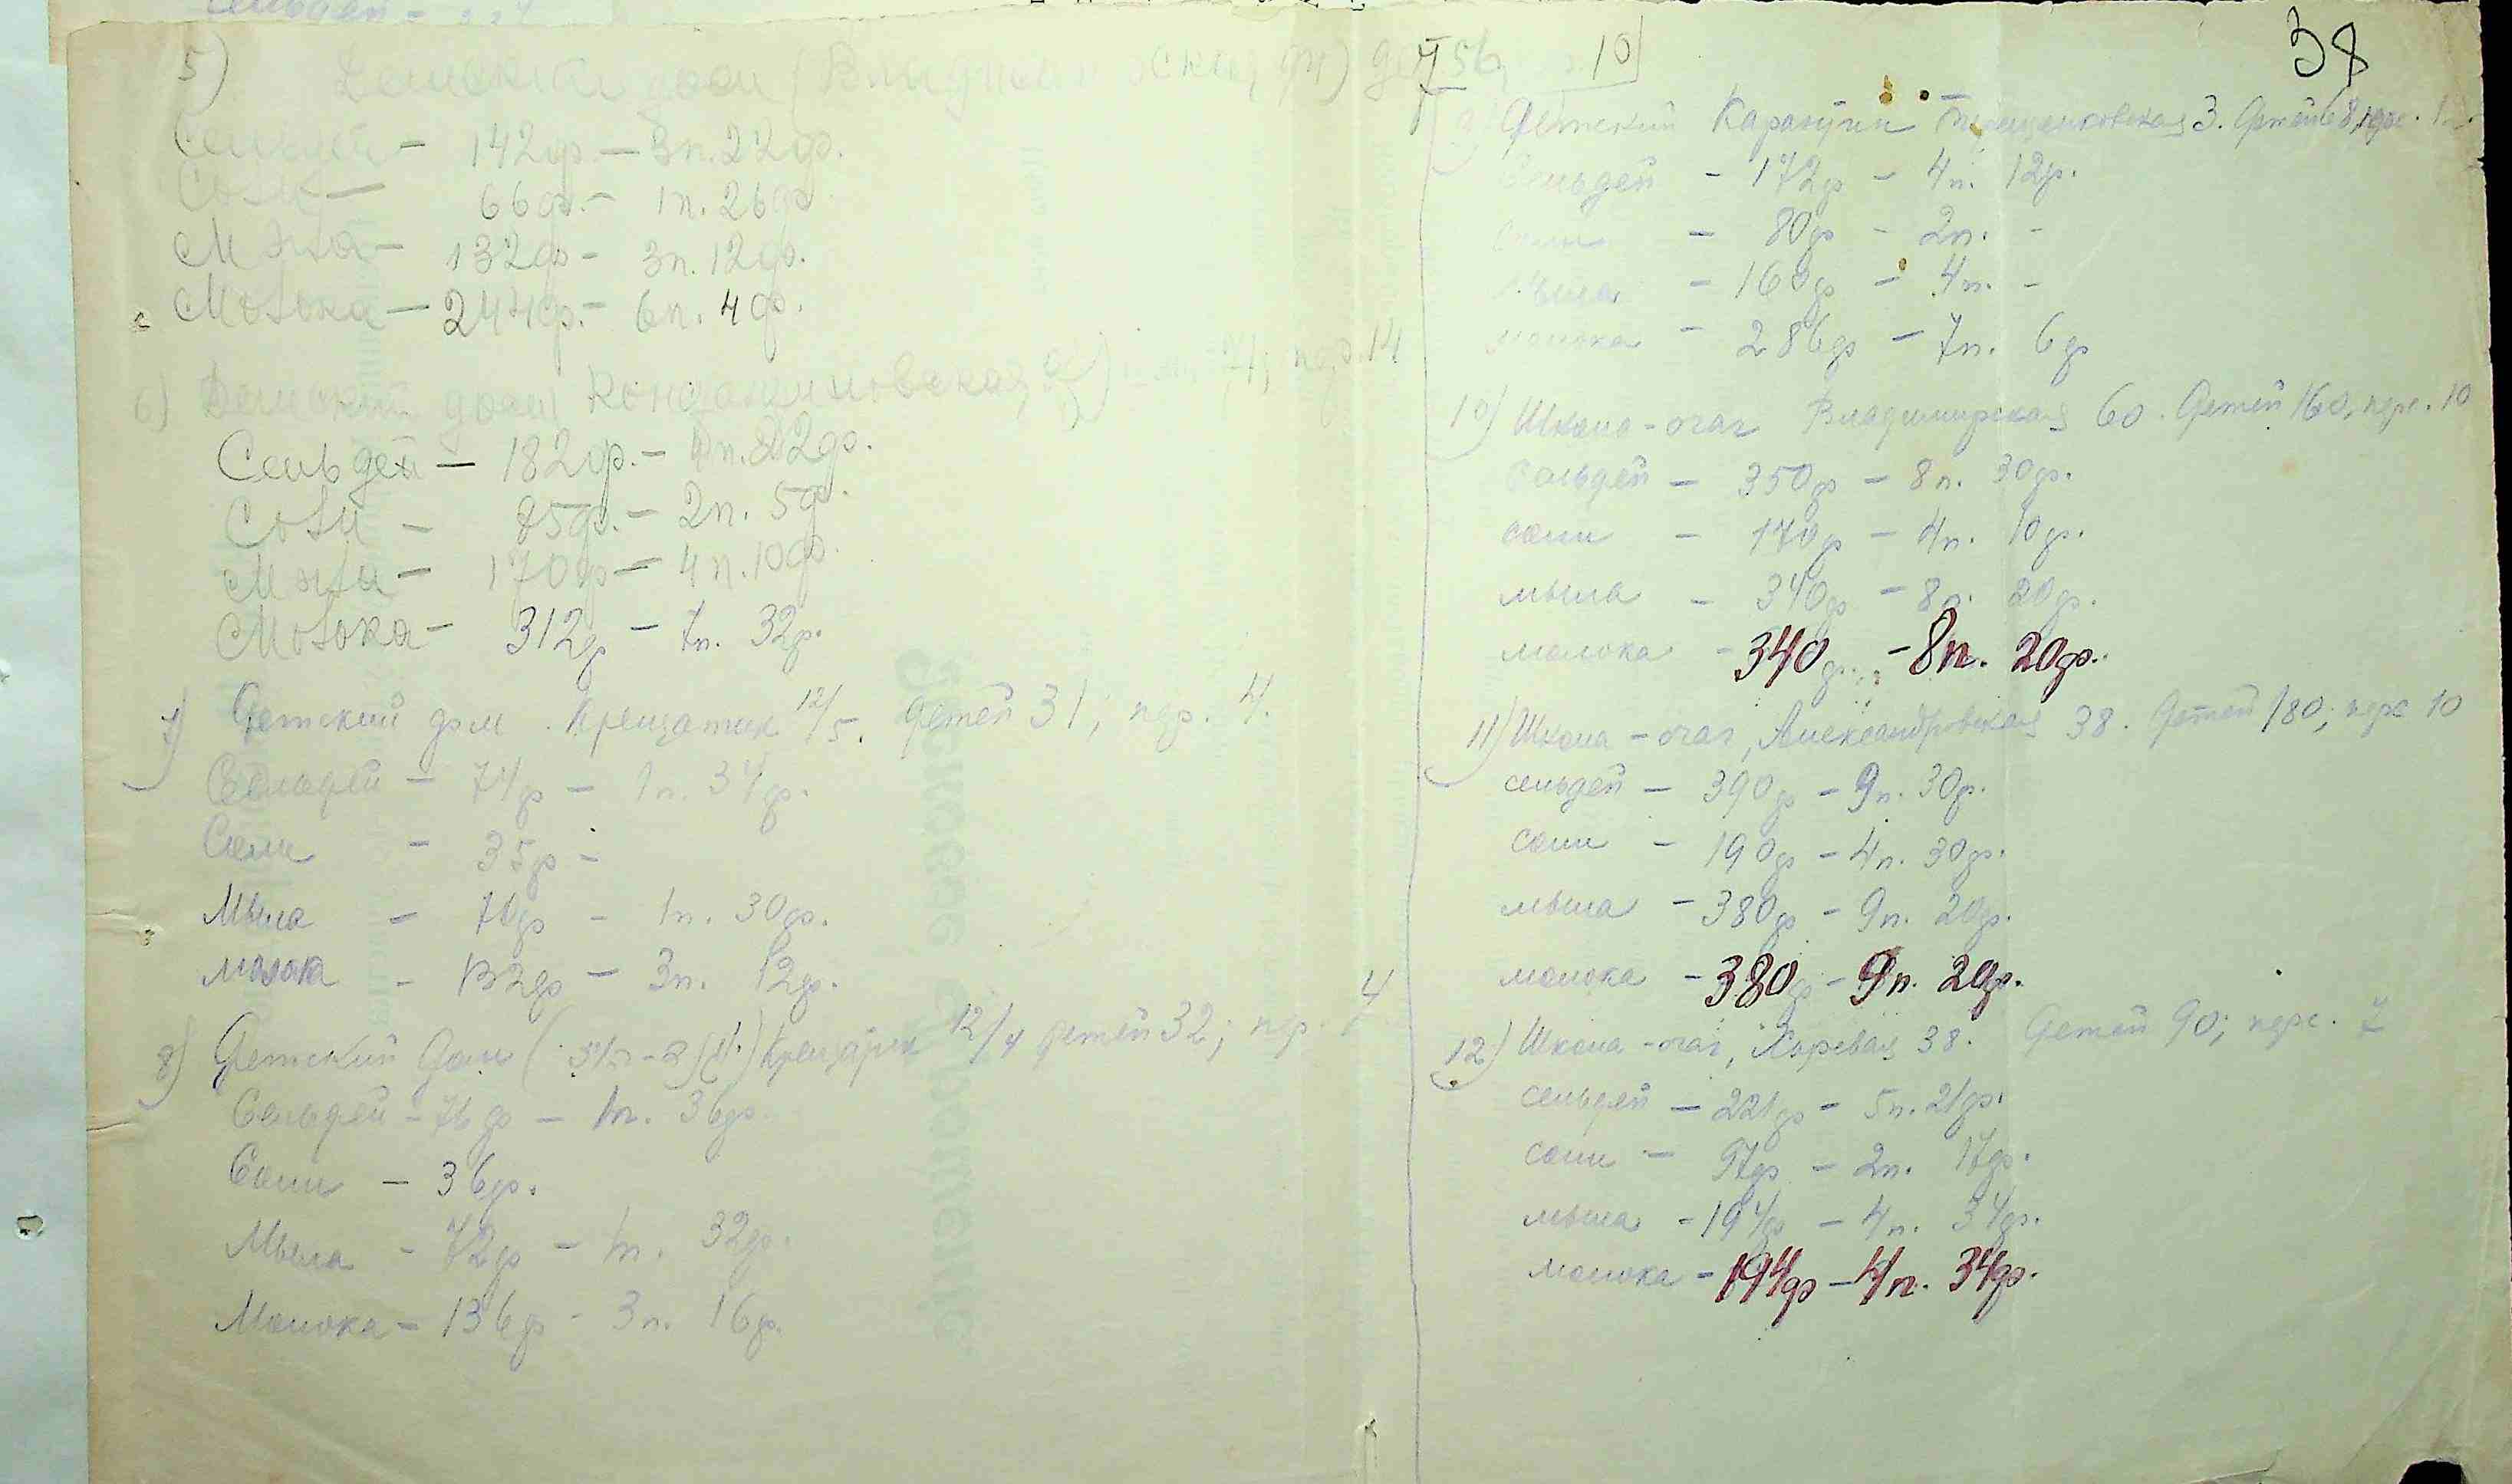 38
5) Детский дом (Владимирская, 94) дет. 56, 10
Сельдей - 142ф. - 3п. 22ф.
Соли - 66ф. - 1п. 26ф.
Мыла - 132ф - 3п. 12ф.
Молока - 244ф. - 6п. 4ф.
6) Детский дом 71; пер. 14
Сельдей - 182ф. - 4п. 22ф.
Соли - 85ф. - 2п. 5ф.
Мыла - 170ф - 4п. 10ф.
Молока - 312ф - 7п. 32ф.
7) Детский дом. Крещатик 12/5. детей 31; пер. 4.
Сельдей - 74ф - 1п. 34ф.
Соли - 35ф -
Мыла - 70ф - 1п. 30ф.
молока - 132ф - 3п. 12ф.
8) Детский Дом Крещатик 12/4 детей 32; пер. 4
Сельдей - 76ф - 1п. 36ф.
Соли - 36ф.
Мыла - 72ф - 1п. 32ф.
Молока - 136ф - 3п. 16ф.
9) Детский Карантин Терещенковская 3. Детей 68,
Сельдей - 172ф - 4п. 12ф.
Соли - 80ф - 2п. -
Мыла - 160ф - 4п. -
молока - 286ф - 7п. 6ф
10) Школа-очаг Владимирская 60. Детей 160, перс. 10
сельдей - 350ф - 8п. 30ф.
соли - 170ф - 4п. 10ф.
мыла - 340ф - 8п. 20ф.
молока - 340ф. - 8п. 20ф.
11) Школа-очаг, Александровская 38. Детей 180; перс 10
сельдей - 390ф - 9п. 30ф.
соли - 190ф - 4п. 30ф.
мыла - 380ф - 9п. 20ф.
молока - 380ф - 9п. 20ф.
12) Школа-очаг, Хоревая 38. Детей 90; перс. 7
сельдей - 221ф - 5п. 21ф.
соли - 97ф - 2п. 17ф.
мыла - 194ф - 4п. 34ф.
молока - 194ф - 4п. 34ф.